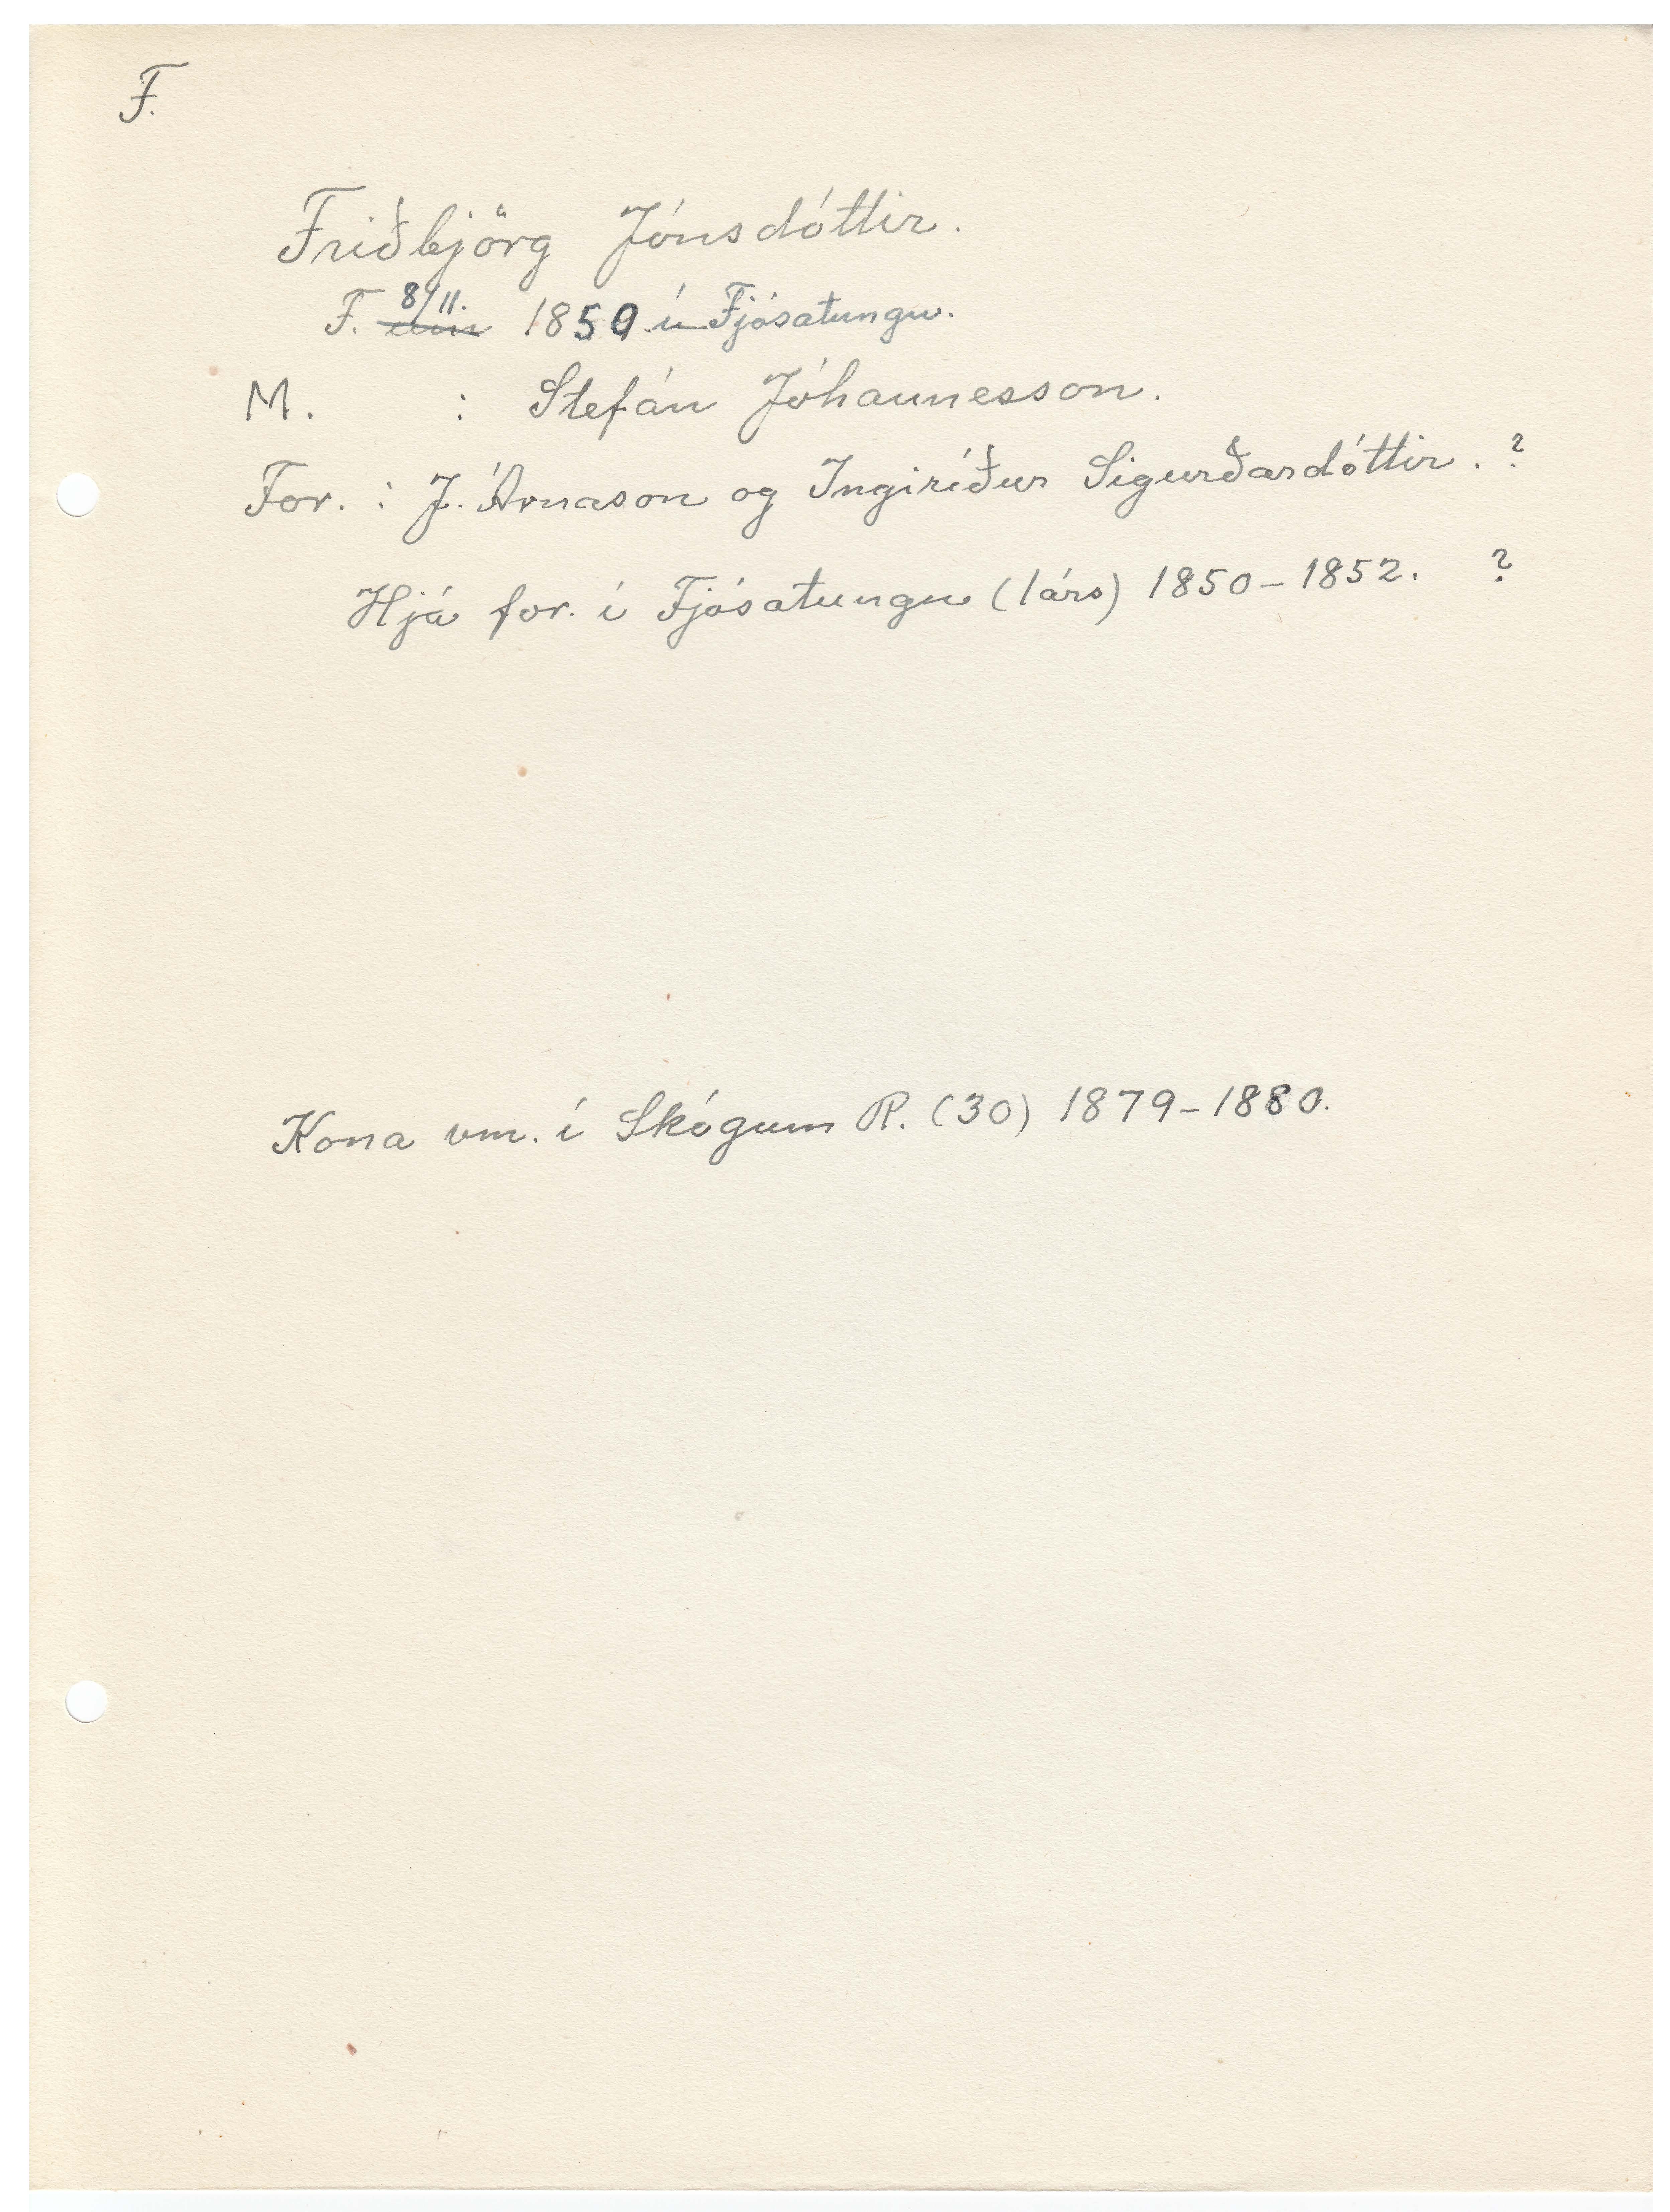 F.
Friðbjörg Jónsdóttir.
F. 8/11. 1850 í Fjósatungu.
M. : Stefán Jóhannesson.
For. : J. Árnason og Ingiríður Sigurðardóttir. ?
Hjá for. í Fjósatungu (1árs) 1850-1852. ?
Kona vm. í Skógum R. (30) 1879-1880.